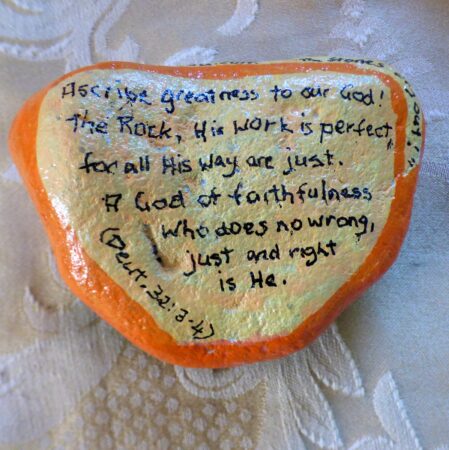 Ascribe greatness to our God!
The Rock, His work is perfect,
for all His way are just.
A God of faithfulness
who does no wrong,
just and right
is He.
(Deut. 32:3-4)
Stones